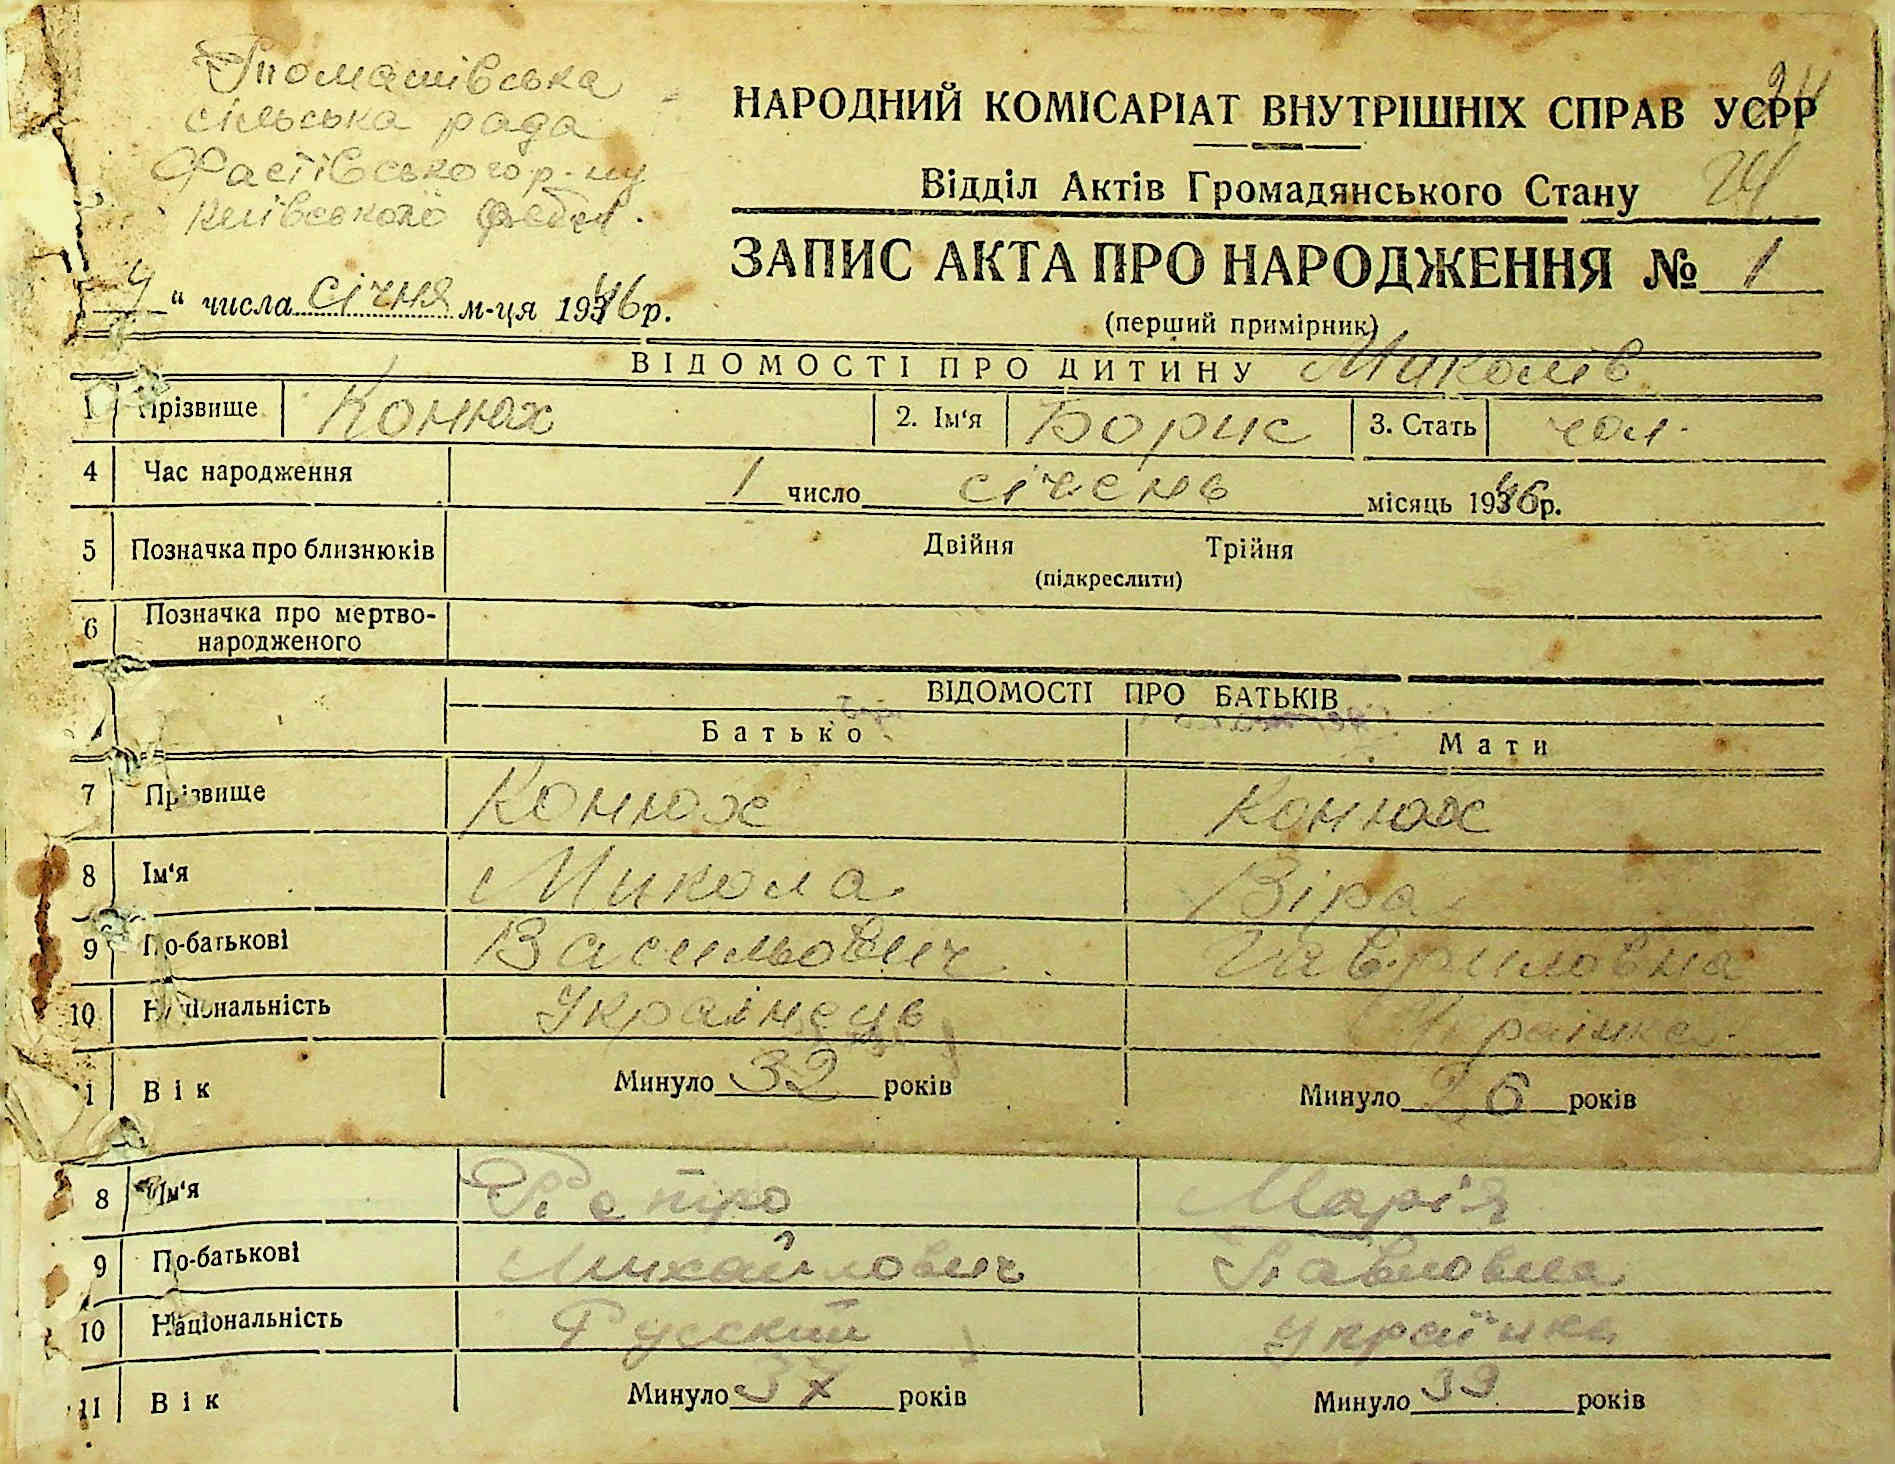 Томашівська
сільська рада
Фастівського р-ну
Київської обл.
24
НАРОДНИЙ КОМІСАРІАТ ВНУТРІШНІХ СПРАВ УСРР
Відділ Актів Громадянського Стану 24
ЗАПИС АКТА ПРО НАРОДЖЕННЯ № 1
(перший примірник)
4 " числа січня м-ця 1946 р.
ВІДОМОСТІ ПРО ДИТИНУ Миколів
1 Прізвище Конюх 2. Ім'я Борис 3. Стать чол.
4 Час народження 1 число січень місяць 1946 р.
5 Позначка про близнюків Двійня Трійня
(підкреслити)
6 Позначка про мертво-
народженого
ВІДОМОСТІ ПРО БАТЬКІВ
Батько Мати
7 Прізвище Конюх Конюх
8 Ім'я Микола Віра
9 По-батькові Васильович Гавриловна
10 Національність Украінець Украінка
11 Вік Минуло 32 років Минуло 26 років
8 Ім'я Петро Марія
9 По-батькові Михайлович Павловна
10 Національність Русский Українка
11 Вік Минуло 37 років Минуло 39 років